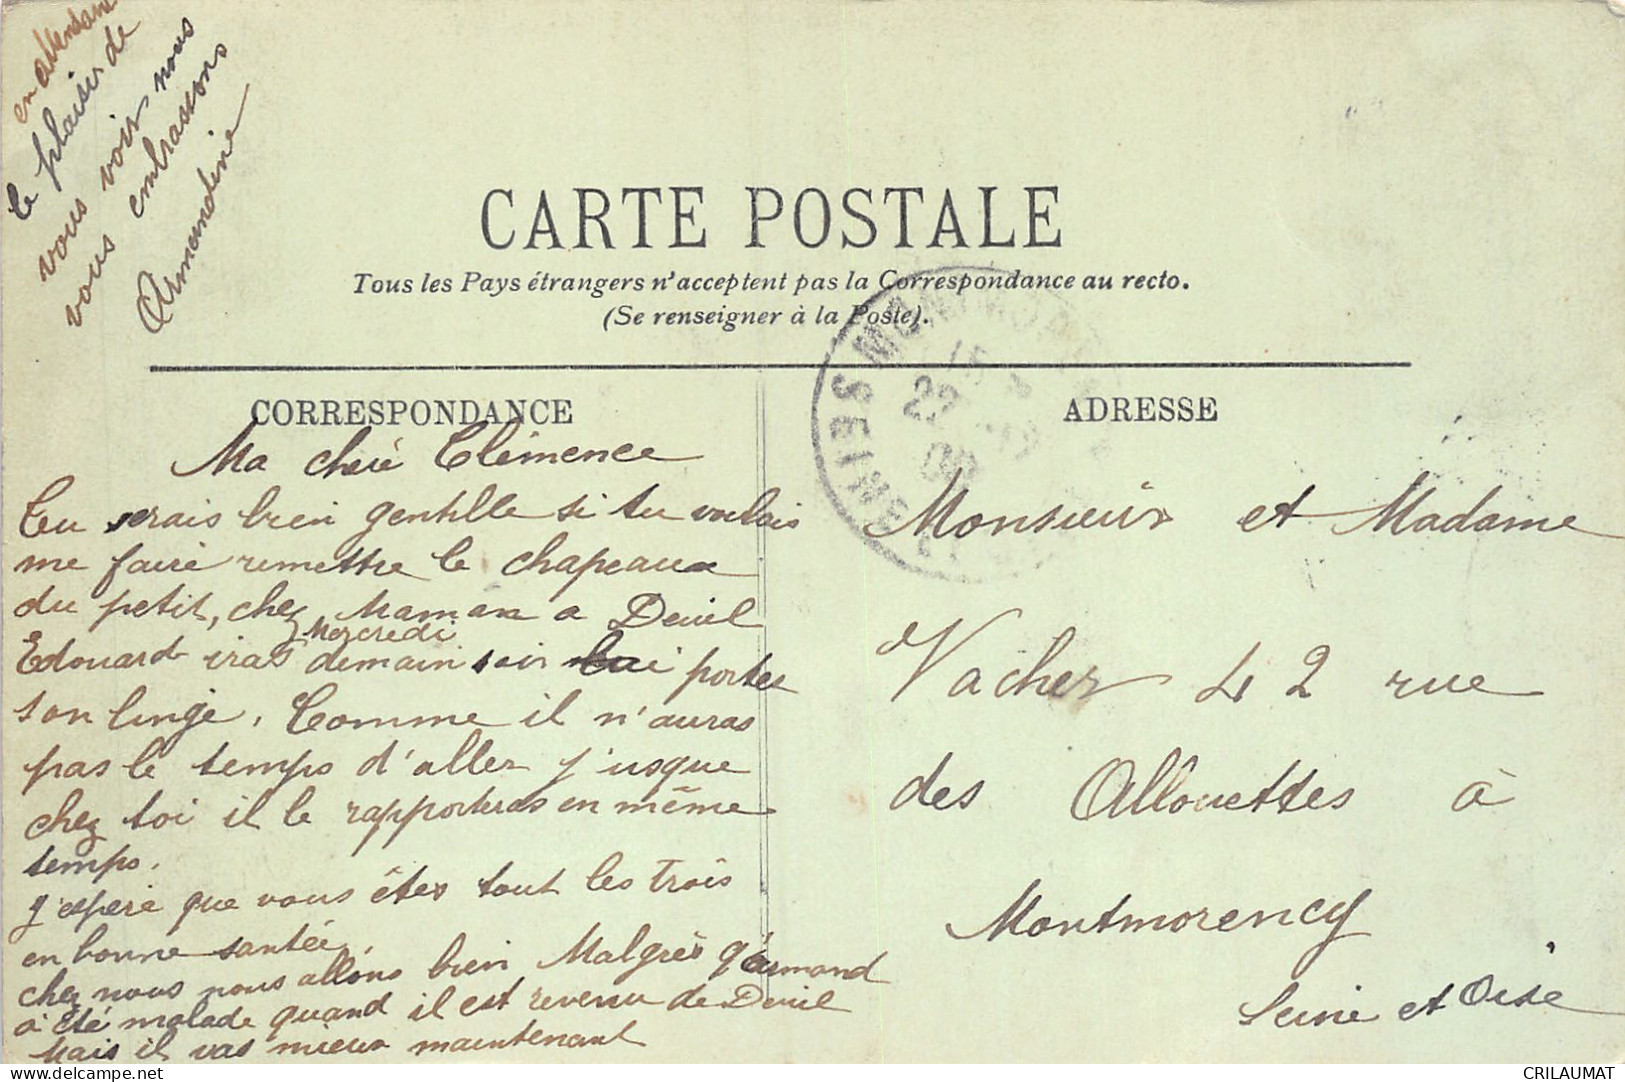 en attendant
le plaisir de
vous voir nous
vous embrassons
Armandine
CARTE POSTALE
Tous les Pays étrangers n'acceptent pas la Correspondance au recto.
(Se renseigner à la Poste).
CORRESPONDANCE
Ma cheré Clémence
Tu serais bien gentille si tu voulais
me faire remettre le chapeaux
du petit, chez Maman a Deuil
Mercredi
Edouard iras demain soir lui porter
son linge. Comme il n'auras
pas le temps d'aller j'usque
chez toi il le rapporteras en même
temps.
J'esperé que vous êtes tout les trois
en bonne santée,
chez nous nous allons bien Malgrès q'Armand
à été malade quand il est revenu de Deuil
Mais il vas mieux maintenant
ADRESSE
Monsieur et Madame
Vacher 42 rue
des Allouettes à
Montmorency
Seine et Oise
MONTMORENCY
SEINE
22
CRILAUMAT